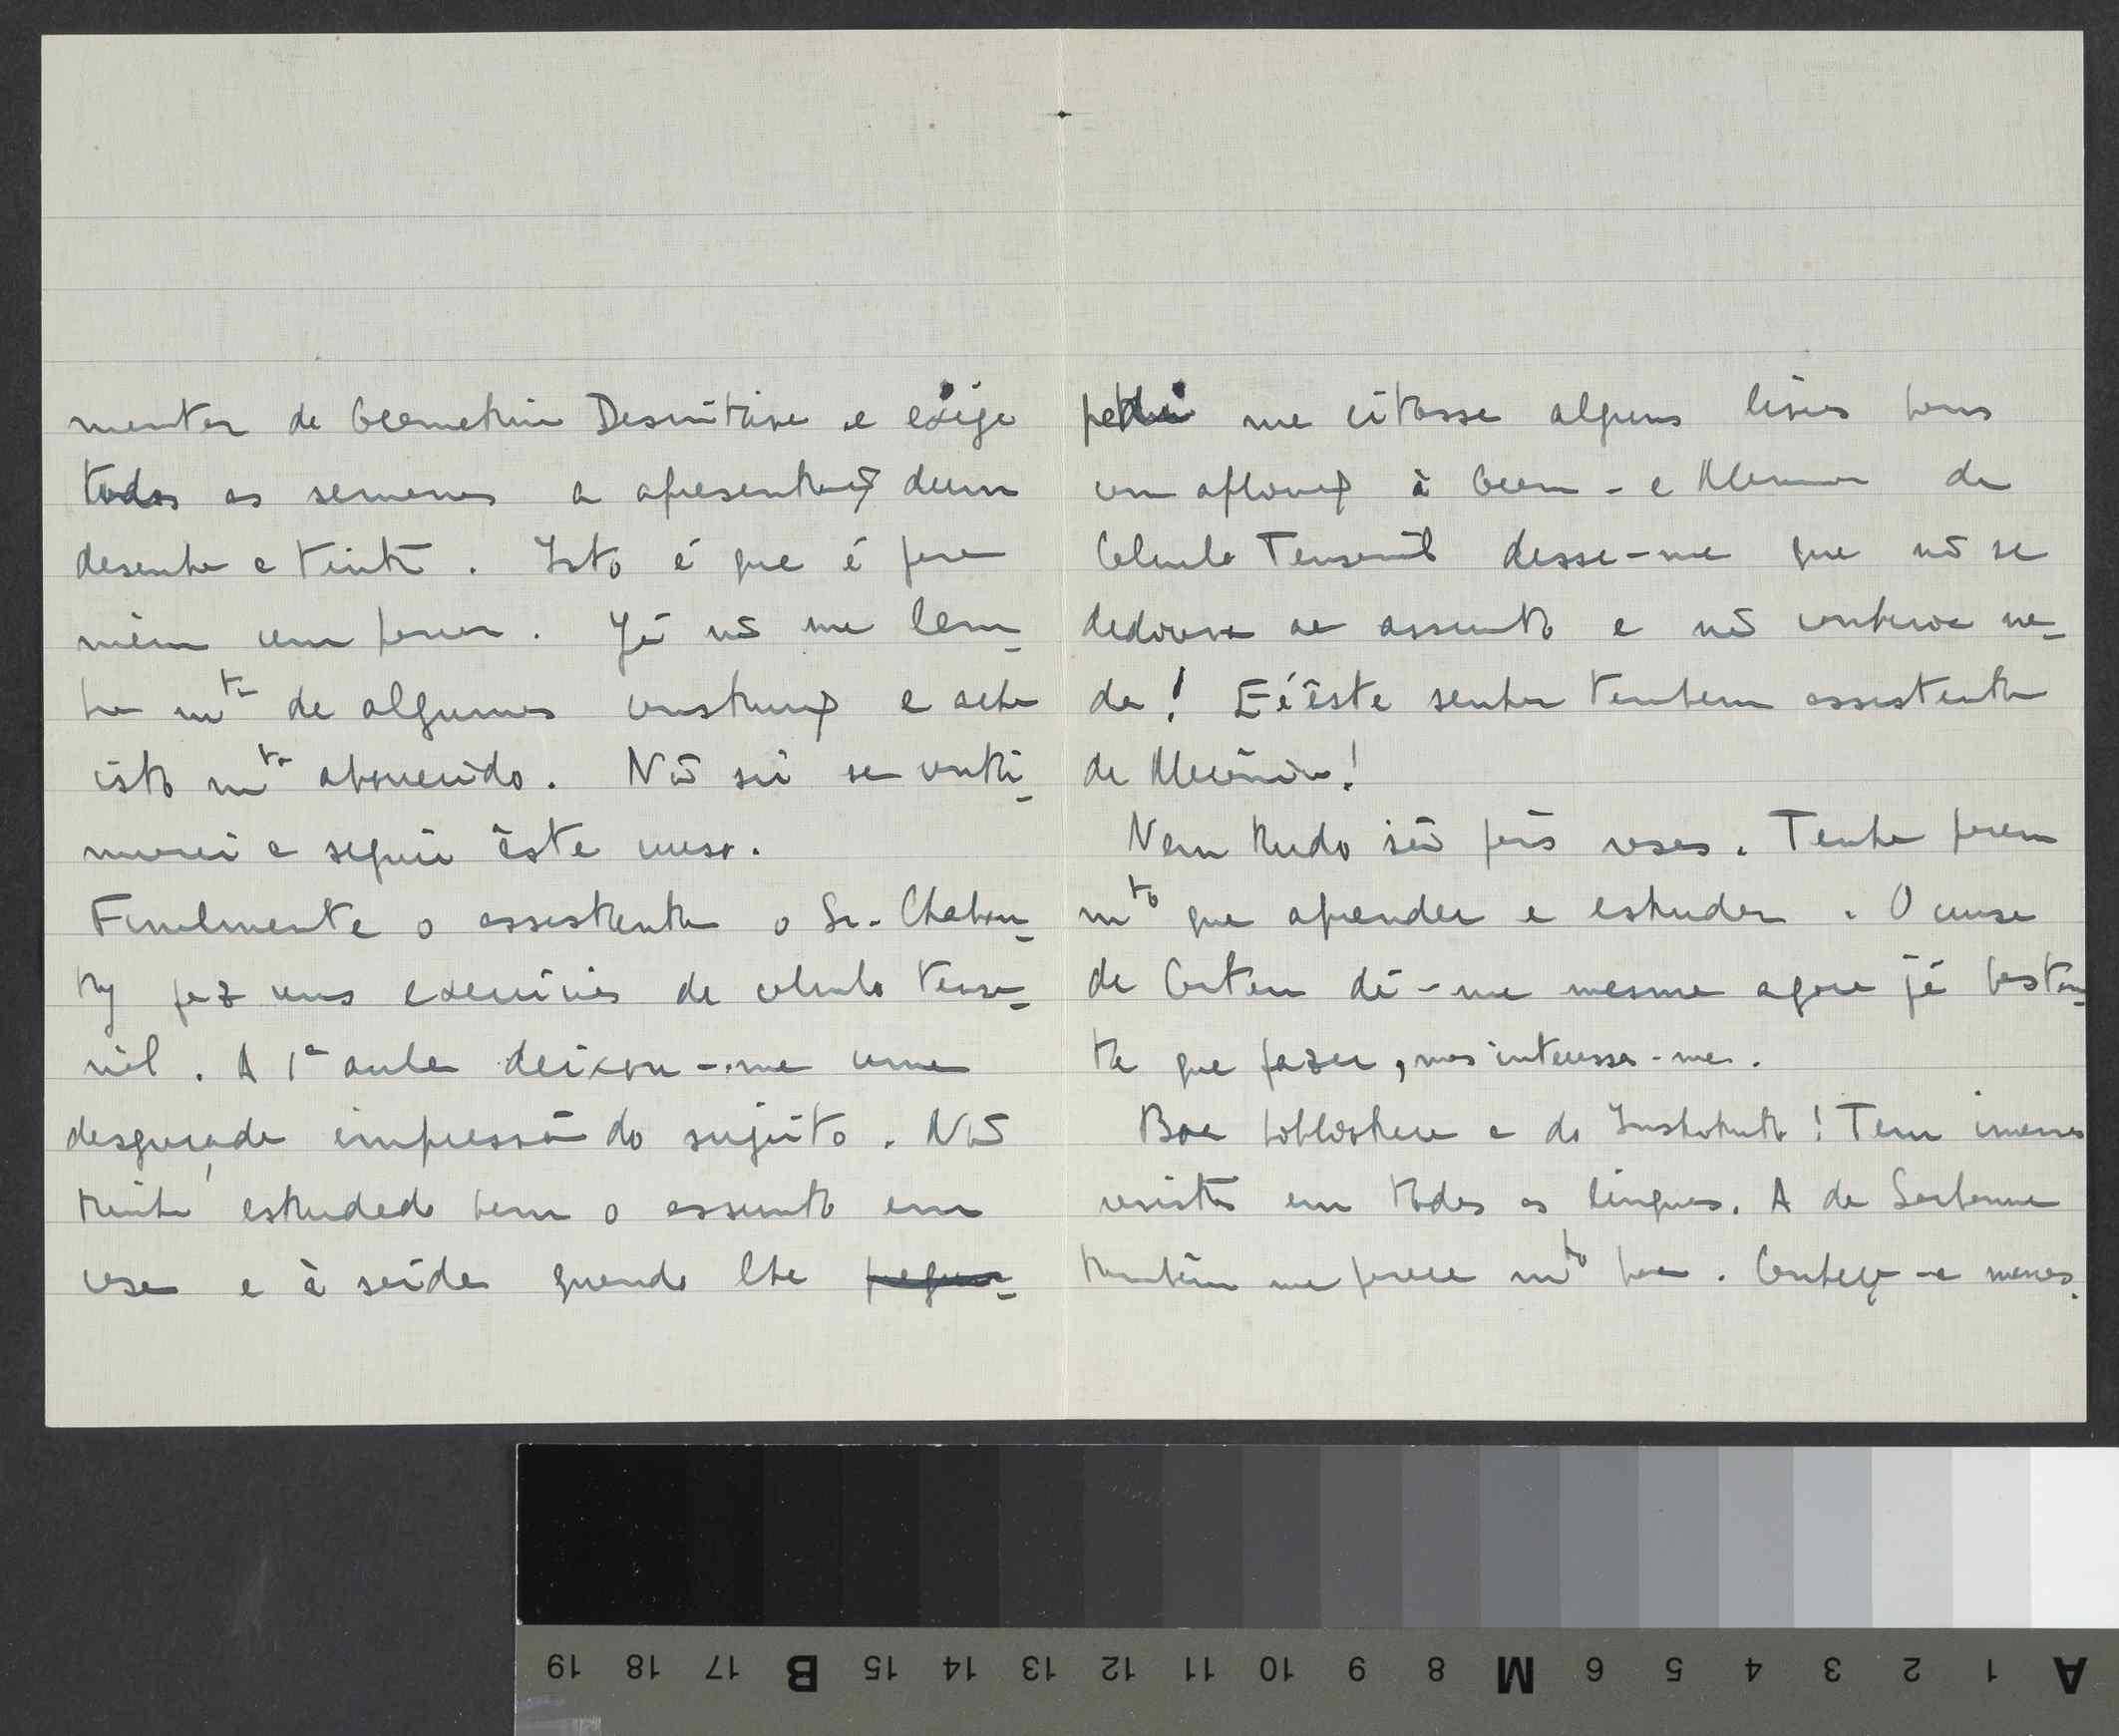 mentos de Geometria Descritiva e exige
todas as semanas a apresentação dum
desenho a tinta. Isto é que é para
mim um pavor. Já não me lem-
bro mto de algumas construções e acho
isto mto aborrecido. Não sei se conti-
nuarei a seguir êste curso.
Finalmente o assistente o Sr. Chabau-
ty fez uns exercícios de calculo tenso-
rial. A 1ª aula deixou-me uma
desgraçada impressão do sujeito. Não
trazia estudado bem o assunto em
casa e à saída quando lhe
pedi me citasse alguns livros bons
com aplicações à Geom- e Mecanica do
Calculo Tensorial disse-me que não se
dedicava ao assunto e não conhecia na-
da! E é êste senhor tambem assistente
de Mecânica!
Nem tudo são pois rosas. Tenho porem
mto que aprender e estudar. O curso
de Cartan dá-me mesmo agora já bastan-
te que fazer, mas interessa-me.
Boa biblioteca a do Instituto! Tem imensas
revistas em todas as linguas. A da Sorbonne
também me parece mto boa. Conheço-a menos.